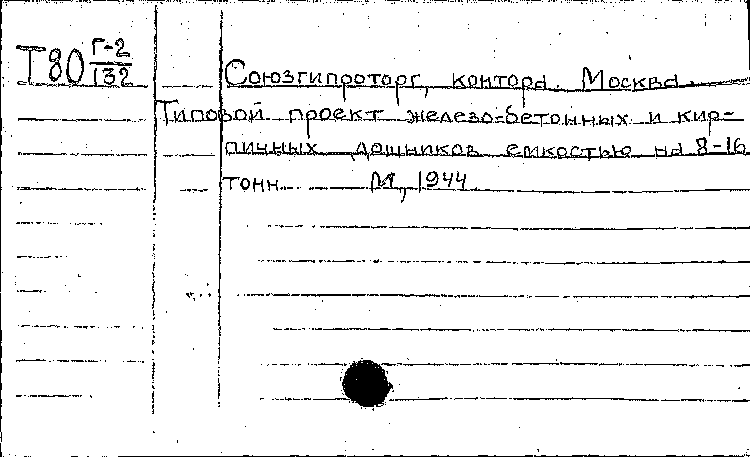 Т80 Г-2/132
Союзгипроторг, контора. Москва.
Типовой проект железо-бетонных и кир-
пичных дошников емкостью на 8-16
тонн. М., 1944